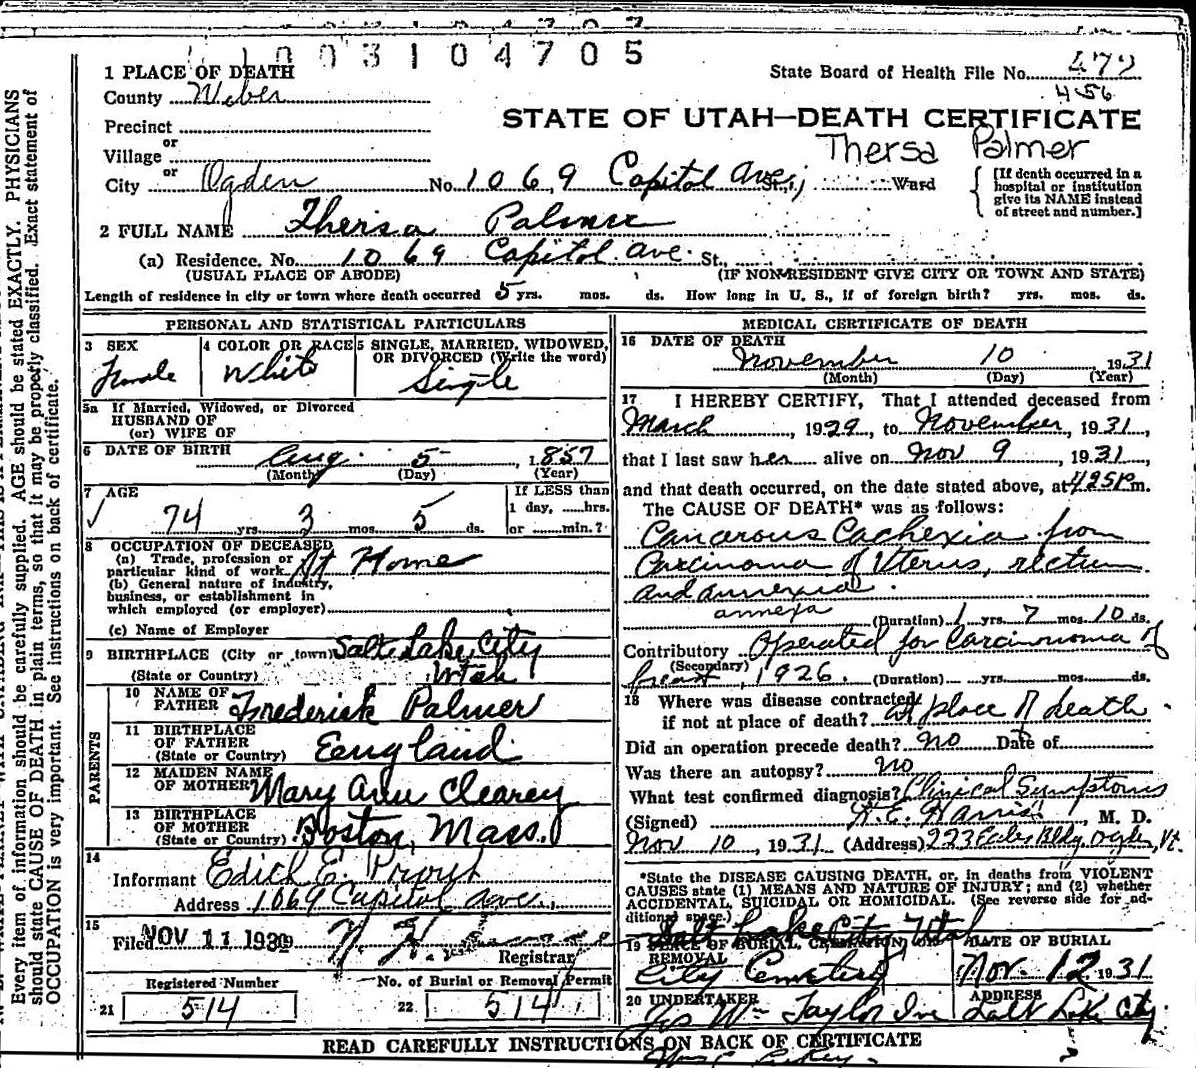 003104705
1 PLACE OF DEATH
State Board of Health File No. 472
County Weber
456
STATE OF UTAH—DEATH CERTIFICATE
Precinct
or
Village
Thersa Palmer
or
City Ogden No. 1069 Capitol Ave. St., Ward
[If death occurred in a
hospital or institution
give its NAME instead
of street and number.]
2 FULL NAME Thersa Palmer
(a) Residence. No. 1069 Capitol Ave. St.,
(USUAL PLACE OF ABODE) (IF NON-RESIDENT GIVE CITY OR TOWN AND STATE)
Length of residence in city or town where death occurred 5 yrs. mos. ds. How long in U. S., if of foreign birth? yrs. mos. ds.
PERSONAL AND STATISTICAL PARTICULARS
3 SEX 4 COLOR OR RACE 5 SINGLE, MARRIED, WIDOWED,
OR DIVORCED (Write the word)
Female White Single
5a If Married, Widowed, or Divorced
HUSBAND OF
(or) WIFE OF
6 DATE OF BIRTH Aug. 5, 1857
(Month) (Day) (Year)
7 AGE
74 yrs. 3 mos. 5 ds.
If LESS than
1 day, ......hrs.
or ......min.?
8 OCCUPATION OF DECEASED
(a) Trade, profession or
particular kind of work At Home
(b) General nature of industry,
business, or establishment in
which employed (or employer)
(c) Name of Employer
9 BIRTHPLACE (City or town) Salt Lake City
(State or Country) Utah
PARENTS
10 NAME OF
FATHER Frederick Palmer
11 BIRTHPLACE
OF FATHER
(State or Country) Eengland
12 MAIDEN NAME
OF MOTHER Mary Ann Clearey
13 BIRTHPLACE
OF MOTHER
(State or Country) Boston, Mass.
14
Informant Edith E.
Address 1069 Capitol Ave.,
15
Filed NOV 11 193
Registrar
Registered Number No. of Burial or Removal Permit
21 514 22 514
MEDICAL CERTIFICATE OF DEATH
16 DATE OF DEATH
November 10 1931
(Month) (Day) (Year)
17 I HEREBY CERTIFY, That I attended deceased from
March, 1929, to November, 1931,
that I last saw her alive on Nov 9, 1931,
and that death occurred, on the date stated above, at 425 P m.
The CAUSE OF DEATH* was as follows:
Cancrous Cachexia from
Carcinoma of Uterus, rectum
and annexia.
annexa
(Duration) 1 yrs. 7 mos. 10 ds.
Contributory Operated for Carcinoma of
(Secondary)
breast, 1926. (Duration) yrs. mos. ds.
18 Where was disease contracted
if not at place of death? At place of death
Did an operation precede death? No Date of
Was there an autopsy? No
What test confirmed diagnosis? Clinical Symptoms
(Signed) Harris, M. D.
Nov 10, 1931 (Address) 223 Eccles Bldg. Ogden, Ut.
*State the DISEASE CAUSING DEATH, or, in deaths from VIOLENT
CAUSES state (1) MEANS AND NATURE OF INJURY; and (2) whether
ACCIDENTAL, SUICIDAL OR HOMICIDAL. (See reverse side for ad-
ditional space.)
Salt Lake City Utah
19 PLACE OF BURIAL, CREMATION OR
REMOVAL
DATE OF BURIAL
City Cemetery Nov. 12 1931
20 UNDERTAKER ADDRESS
Jos Wm Taylor Inc Salt Lake City
READ CAREFULLY INSTRUCTIONS ON BACK OF CERTIFICATE
Every item of information should be carefully supplied. AGE should be stated EXACTLY. PHYSICIANS
should state CAUSE OF DEATH in plain terms, so that it may be properly classified. Exact statement of
OCCUPATION is very important. See instructions on back of certificate.